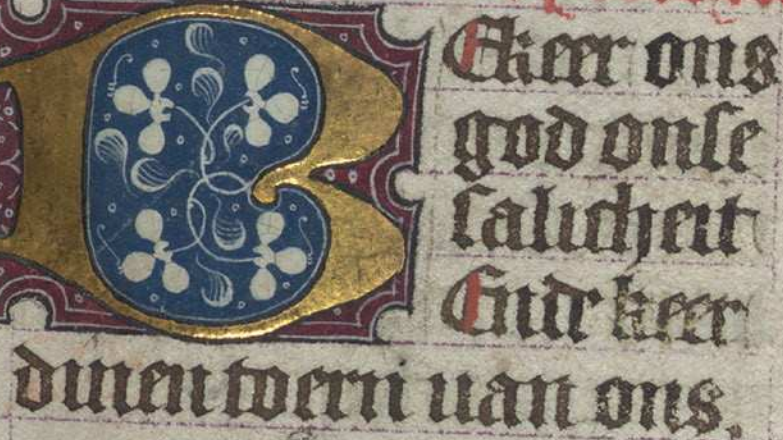 BEkeer ons
god onse
salicheit
Ende keer
dinen toern uan ons.